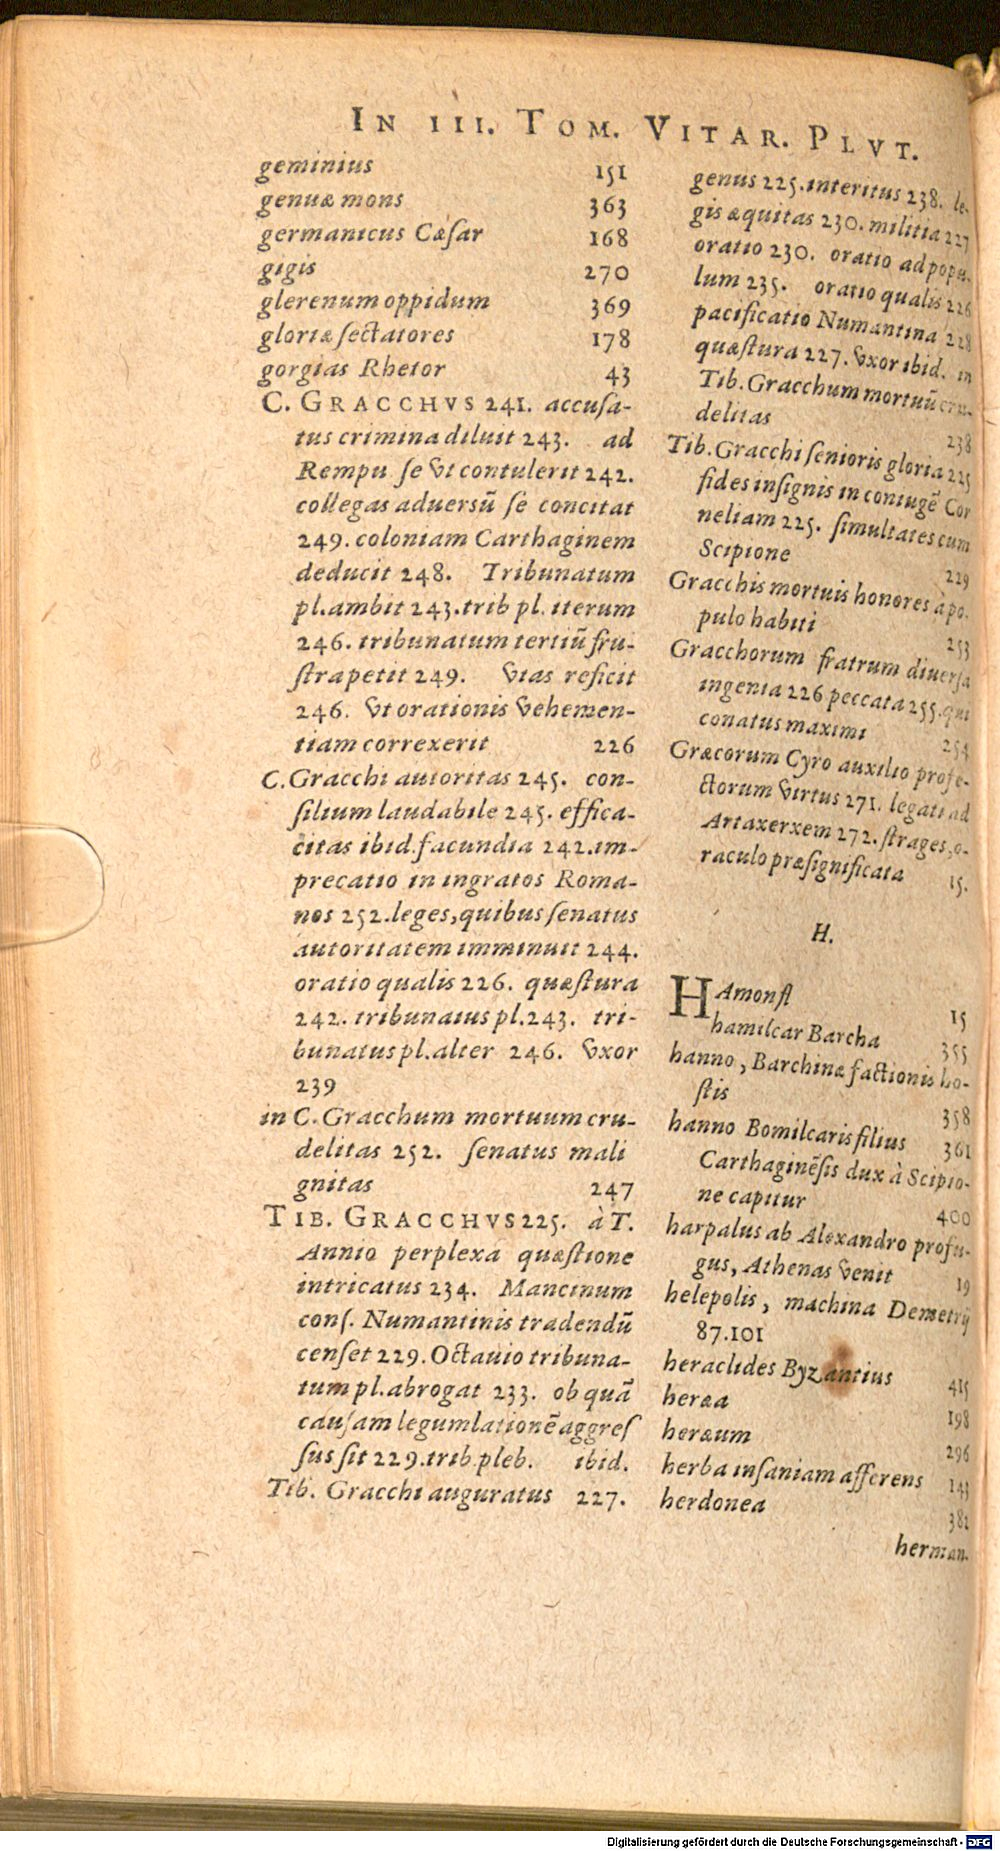 IN III. TOM. VITAR. PLVT.
geminius 151
genuæ mons 363
germanicus Cæſar 168
gigis 270
glerenum oppidum 369
gloriæ ſectatores 178
gorgias Rhetor 43
C. GRACCHVS 241. accuſa-
tus crimina diluit 243. ad
Rempu ſe vt contulerit 242.
collegas aduersũ ſe concitat
249. coloniam Carthaginem
deducit 248. Tribunatum
pl. ambit 243. trib pl. iterum
246. tribunatum tertiũ fru-
ſtra petit 249. vias reficit
246. vt orationis vehemen-
tiam correxerit 226
C. Gracchi autoritas 245. con-
ſilium laudabile 245. effica-
citas ibid. facundia 242. im-
precatio in ingratos Roma-
nos 252. leges, quibus ſenatus
autoritatem imminuit 244.
oratio qualis 226. quæſtura
242. tribunatus pl. 243. tri-
bunatus pl. alter 246. vxor
239
in C. Gracchum mortuum cru-
delitas 252. ſenatus mali
gnitas 247
TIB. GRACCHVS 225. à T.
Annio perplexa quæſtione
intricatus 234. Mancinum
conſ. Numantinis tradendũ
cenſet 229. Octauio tribuna-
tum pl. abrogat 233. ob quã
cauſam legum lationẽ aggreſ
ſus ſit 229. trib. pleb. ibid.
Tib. Gracchi auguratus 227.
genus 225. interitus 238. le-
gis æquitas 230. militia 227
oratio 230. oratio ad popu-
lum 235. oratio qualis 226
pacificatio Numantina 228
quæſtura 227. vxor ibid. in
Tib. Gracchum mortuũ cru-
delitas 238
Tib. Gracchi ſenioris gloria 225
fides inſignis in coniugẽ Cor
neliam 225. ſimultates cum
Scipione 229
Gracchis mortuis honores à po-
pulo habiti 253
Gracchorum fratrum diuerſa
ingenia 226 peccata 255. qui
conatus maximi 254
Græcorum Cyro auxilio profe-
ctorum virtus 271. legati ad
Artaxerxem 272. ſtrages, o-
raculo præſignificata 15.
H.
HAmon fl 15
hamilcar Barcha 355
hanno, Barchinæ factionis ho-
ſtis 358
hanno Bomilcaris filius 361
Carthaginẽſis dux à Scipio-
ne capitur 400
harpalus ab Alexandro profu-
gus, Athenas venit 19
helepolis, machina Demetrij
87. 101
heraclides Byzantius 415
heræa 198
heræum 296
herba inſaniam afferens 143
herdonea 382
herman-
Digitalisierung gefördert durch die Deutsche Forschungsgemeinschaft - DFG